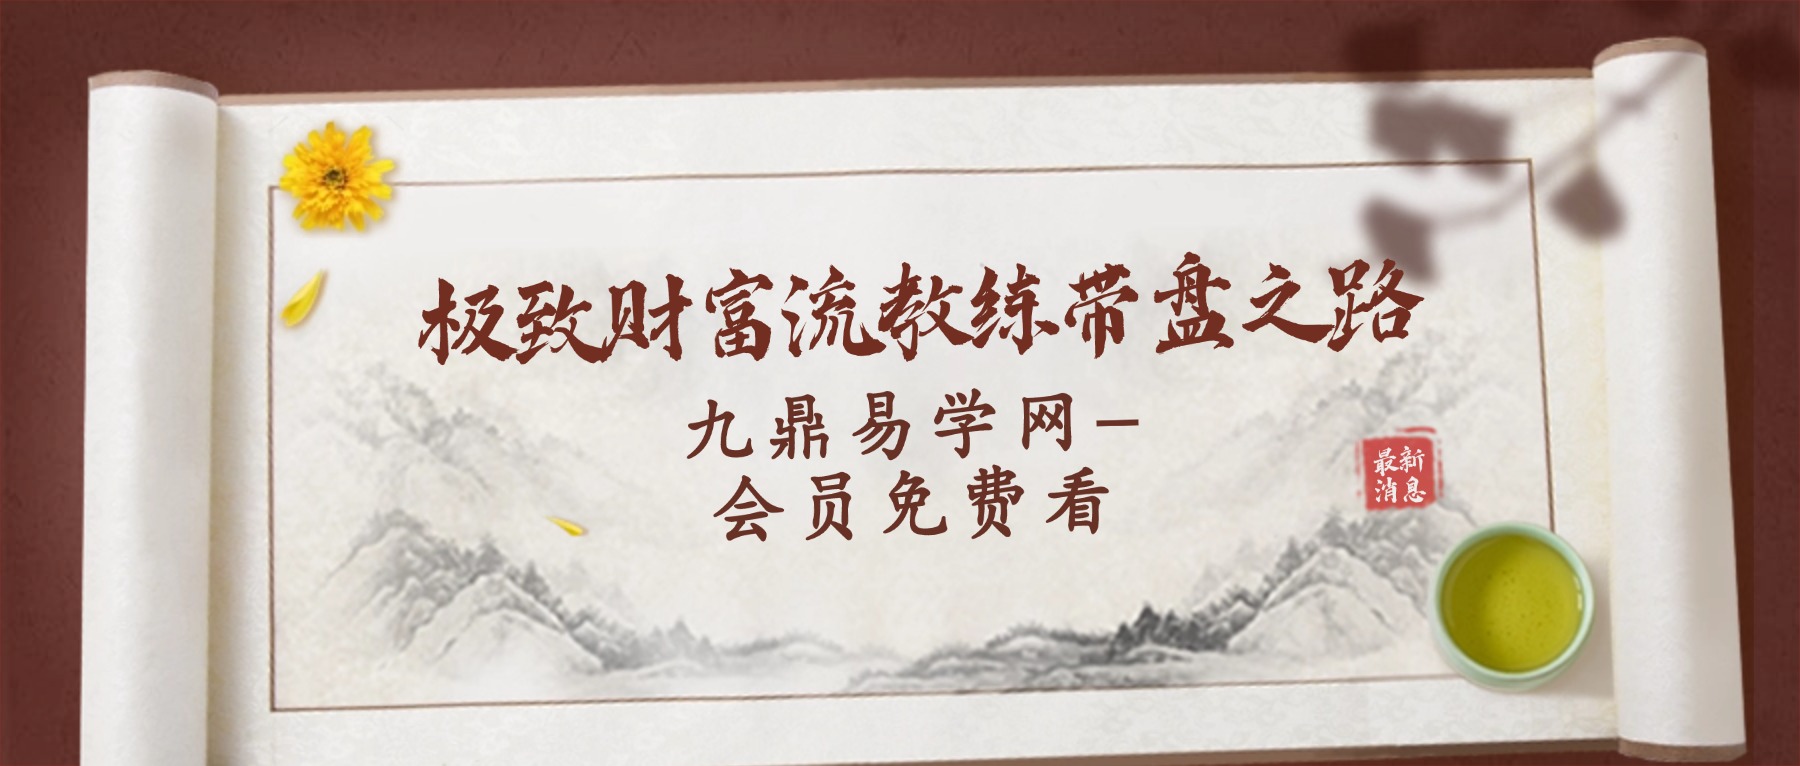 极致财富流教练带盘之路
九鼎易学网–
会员免费看
最新
消息